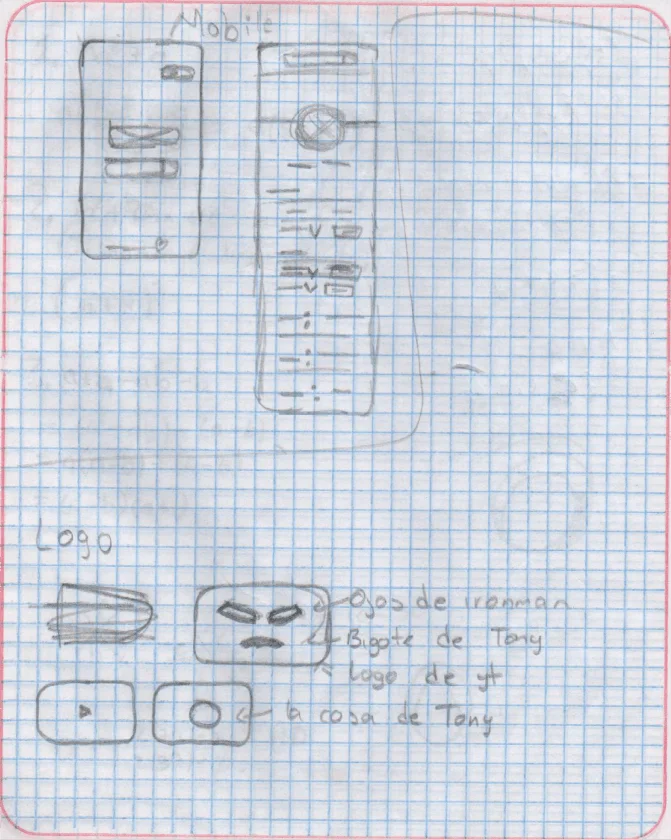 Mobile
Logo
Ojos de ironman
Bigote de Tony
Logo de yt
la cosa de Tony